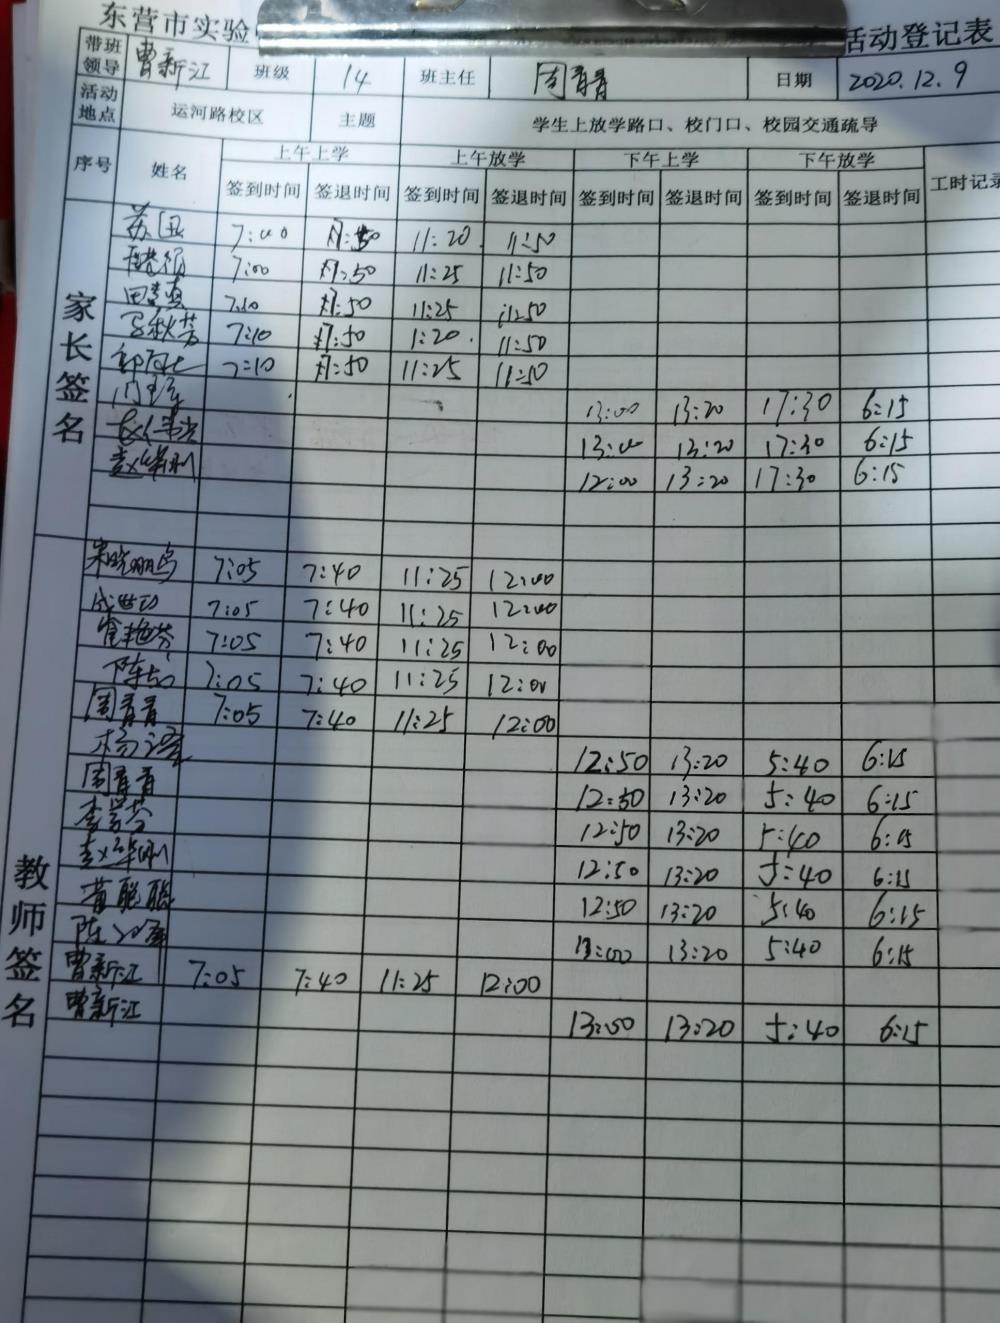 东营市实验 活动登记表
带班领导 曹新江 班级 14 班主任 周青青 日期 2020.12.9
活动地点 运河路校区 主题 学生上放学路口、校门口、校园交通疏导
序号 姓名 上午上学 上午放学 下午上学 下午放学 工时记录
签到时间 签退时间 签到时间 签退时间 签到时间 签退时间 签到时间 签退时间
家长签名
7:00 7:50 11:20 11:50
7:00 7:50 11:25 11:50
7:10 7:50 11:25 11:50
7:10 7:50 1:20 11:50
7:10 7:50 11:25 11:50
13:00 13:20 17:30 6:15
13:00 13:20 17:30 6:15
赵华刚 12:00 13:20 17:30 6:15
教师签名
7:05 7:40 11:25 12:00
成世功 7:05 7:40 11:25 12:00
7:05 7:40 11:25 12:00
7:05 7:40 11:25 12:00
周青青 7:05 7:40 11:25 12:00
12:50 13:20 5:40 6:15
周青青 12:50 13:20 5:40 6:15
12:50 13:20 5:40 6:15
赵华刚 12:50 13:20 5:40 6:15
黄聪聪 12:50 13:20 5:40 6:15
13:00 13:20 5:40 6:15
曹新江 7:05 7:40 11:25 12:00
曹新江 13:00 13:20 5:40 6:15